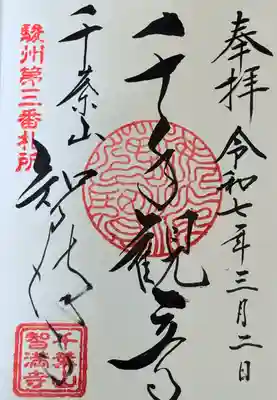 奉拝
令和七年三月二日
千手観音
千葉山
智満寺
駿州第三番札所
千葉山
智満寺